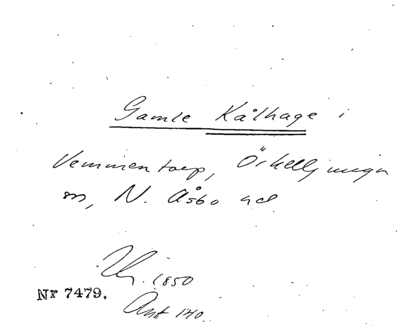 Gamle Kålhage i
Vemmentorp, Örkelljunga
sn, N. Åsbo hd
1850
Nr 7479.
Ant 140.